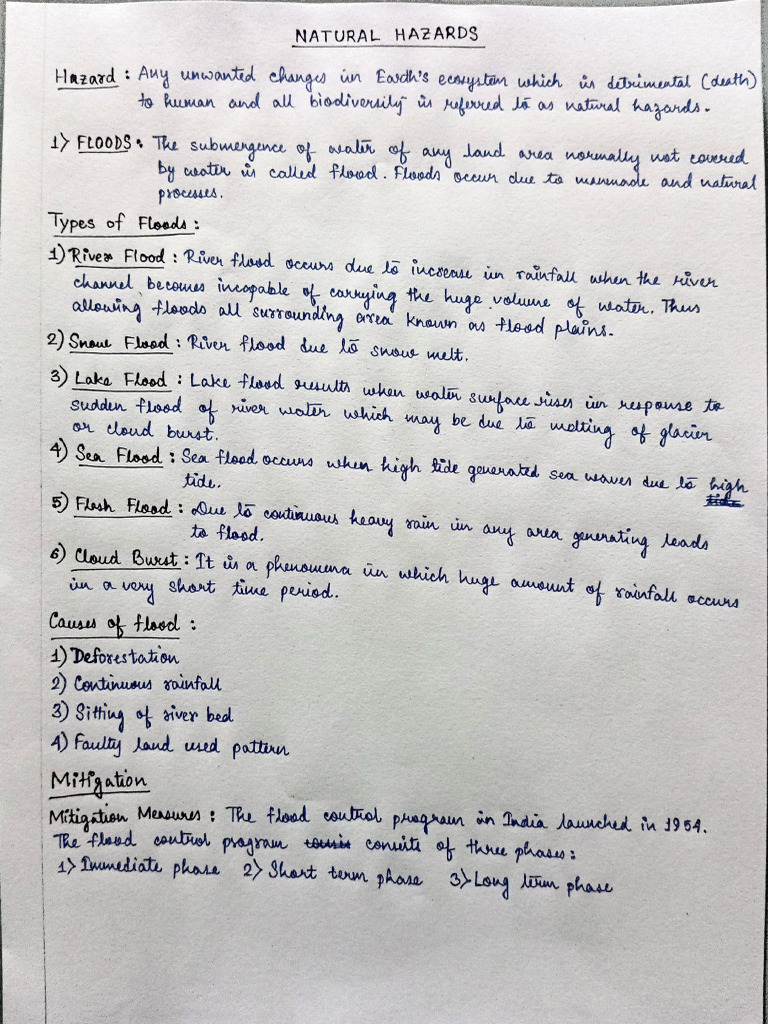 NATURAL HAZARDS
Hazard : Any unwanted changes in Earth's ecosystem which is detrimental (death)
to human and all biodiversity is referred to as natural hazards.
1> FLOODS : The submergence of water of any land area normally not covered
by water is called flood. Floods occur due to manmade and natural
processes.
Types of Floods :
1) River Flood : River flood occurs due to increase in rainfall when the river
channel becomes incapable of carrying the huge volume of water. Thus
allowing floods all surrounding area known as flood plains.
2) Snow Flood : River flood due to snow melt.
3) Lake Flood : Lake flood results when water surface rises in response to
sudden flood of river water which may be due to melting of glacier
or cloud burst.
4) Sea Flood : Sea flood occurs when high tide generated sea waves due to high
tide.
5) Flash Flood : Due to continuous heavy rain in any area generating leads
to flood.
6) Cloud Burst : It is a phenomena in which huge amount of rainfall occurs
in a very short time period.
Causes of flood :
1) Deforestation
2) Continuous rainfall
3) Sitting of river bed
4) Faulty land used pattern
Mitigation
Mitigation Measures : The flood control program in India launched in 1954.
The flood control program consits of three phases :
1> Immediate phase 2> Short term phase 3> Long term phase